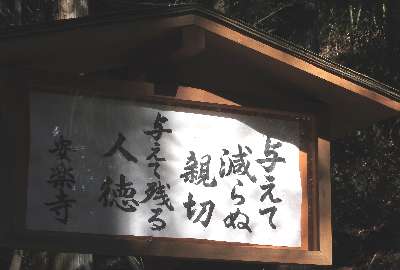 与えて
減らぬ
親切
与えて残る
人徳
安楽寺